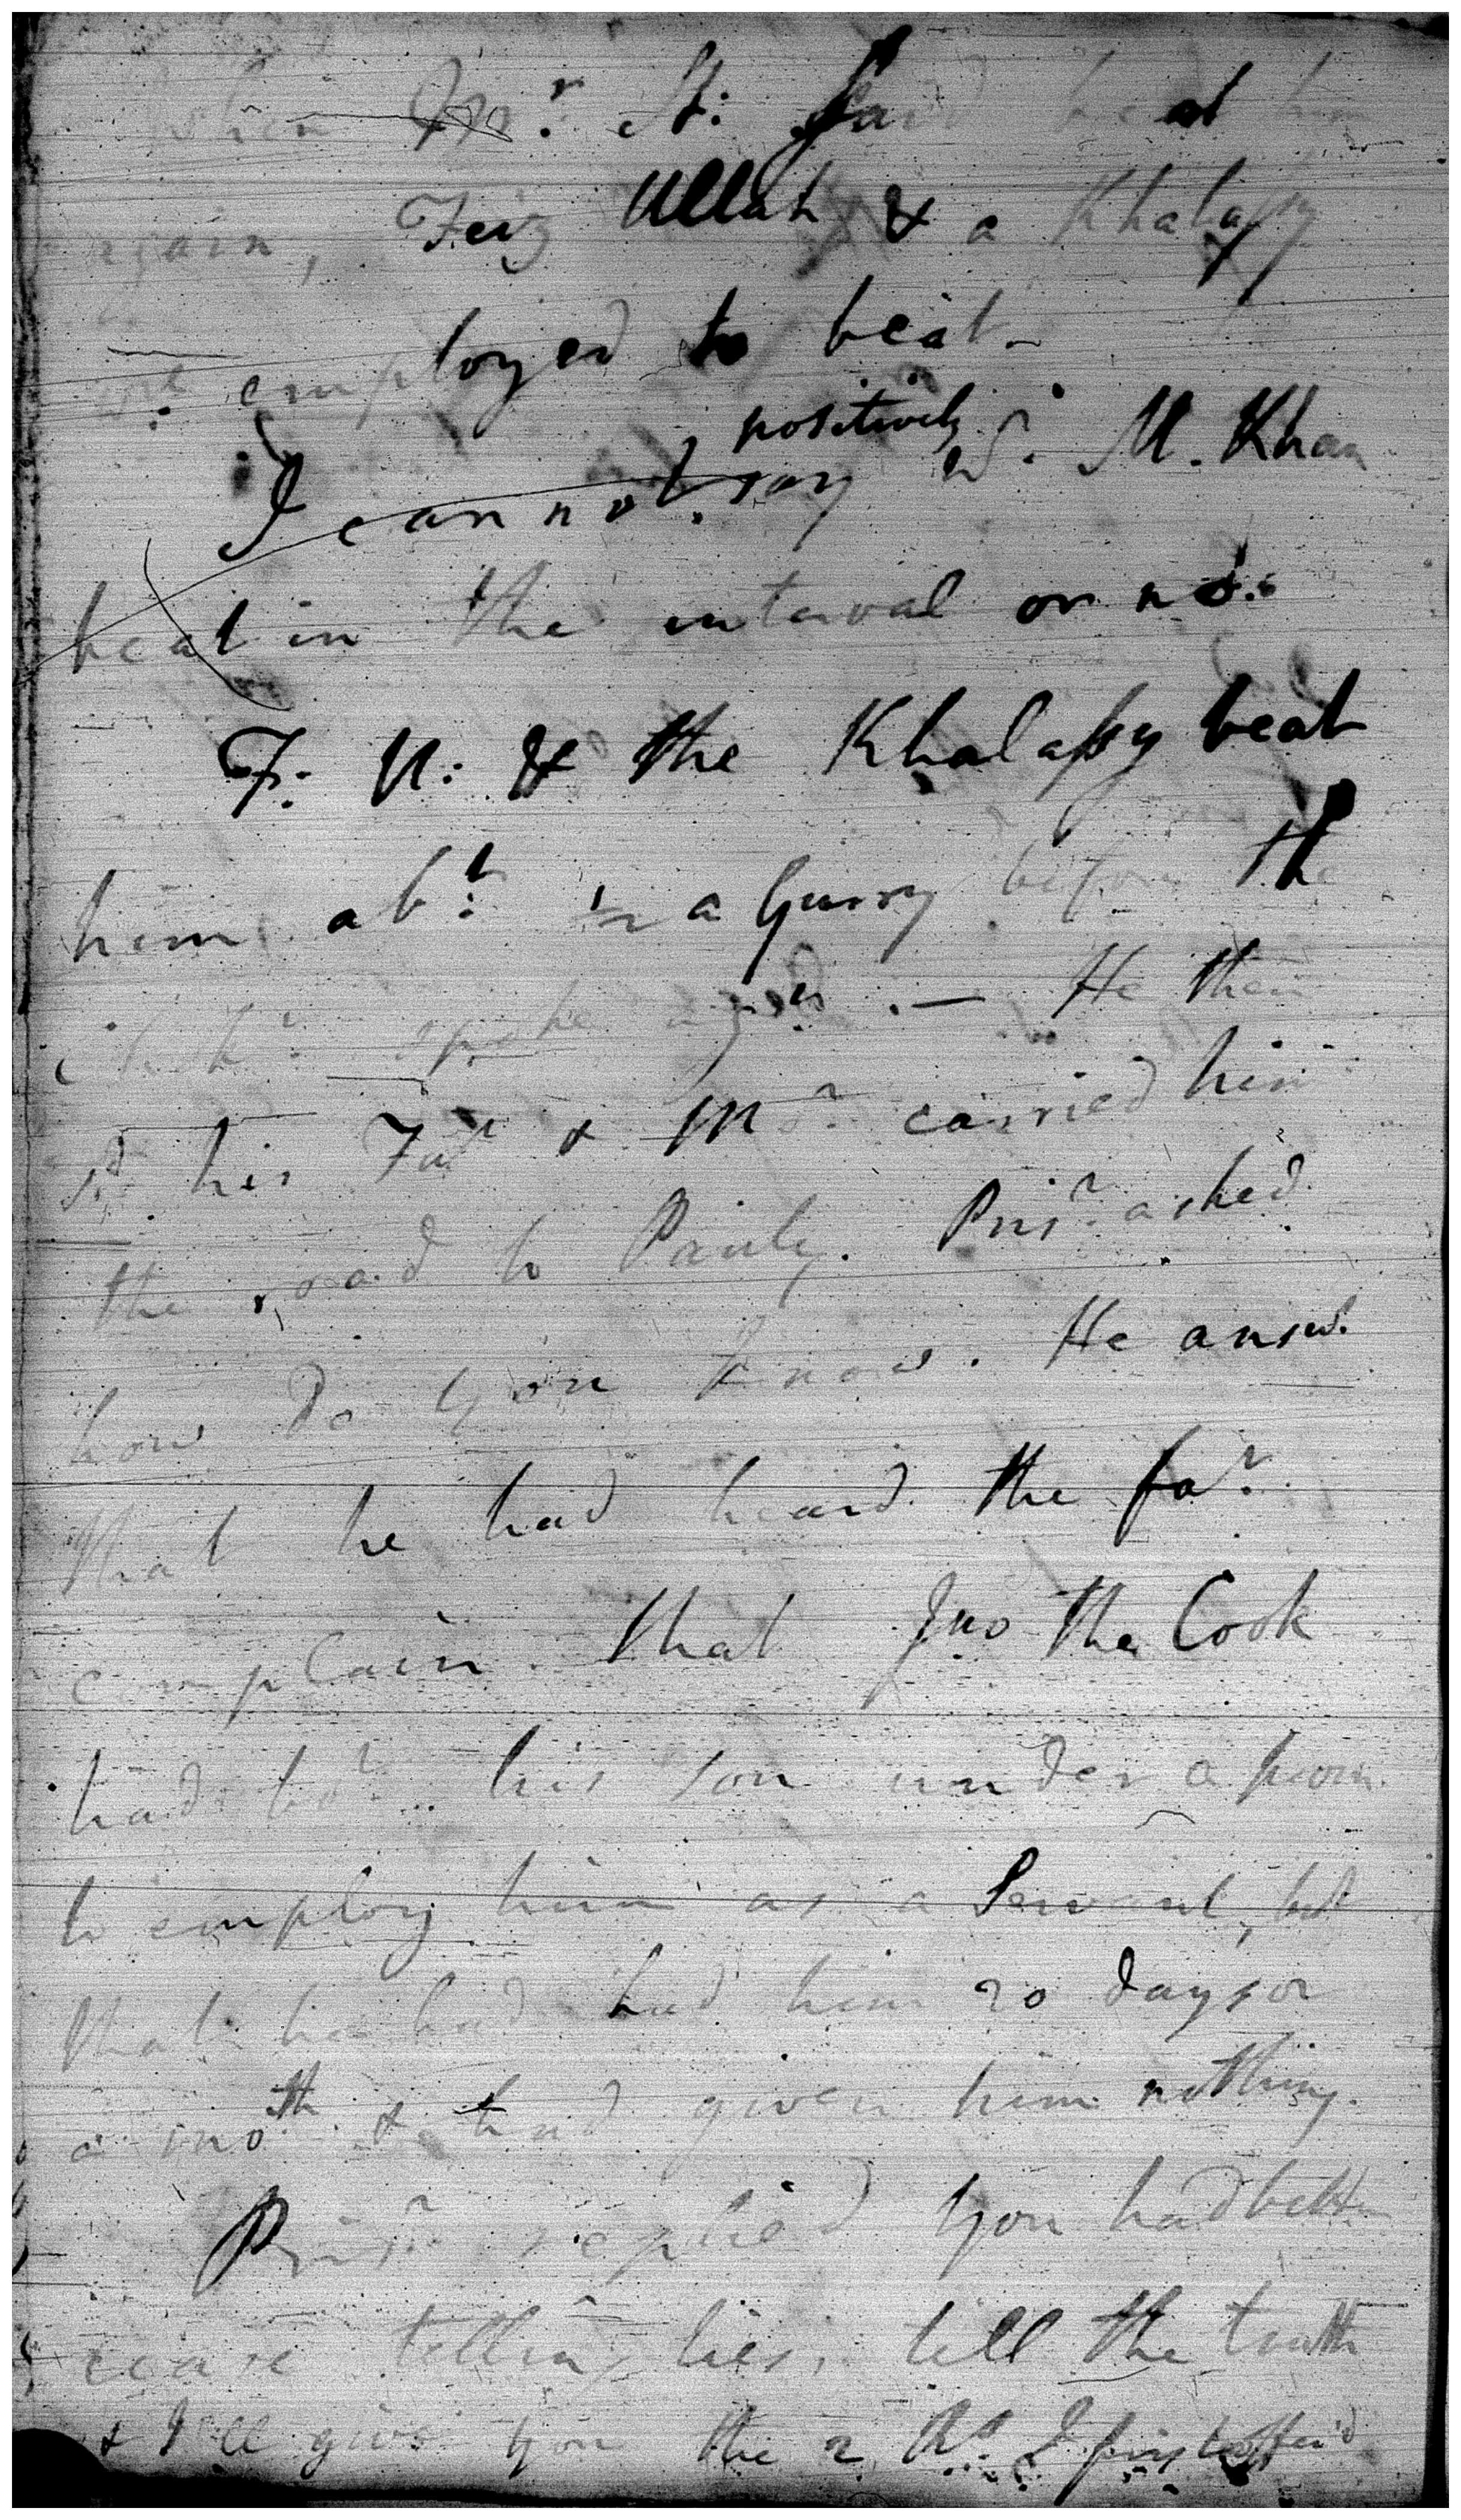 when Pr.r St: said beat him
again, Feiz Ullah & a Khalaſsy
employed to beat.
positively
I cannot say w.r M. Khan
beat in the interval or not.
F: U: & the Khalaſsy beat
him ab.t ½ a Gurry before the
spoke again. — He then
s.d his Fa.r & Mo.r carried him
the road to Pauly. Pris.r asked
how do you know. He answ.d
that he had heard the fa.r
complain that Jno the Cook
had bo.t his son under a prom.
to employ him as a Servant, but
that he had had him 20 days or
a mo.th & had given him nothing.
Pris.r replied you had better
cease telling lies, tell the truth
& I'll give you the 2 R.s I first offer'd